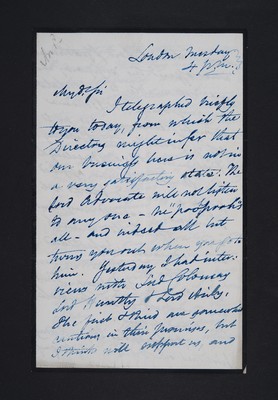 London Monday
4 P.M.
My D Sir
I telegraphed briefly
to you today, from which the
Directors might infer that
our business here is not in
a very satisfactory state. The
Lord Advocate will not listen
to any one - he "pooh pooh's"
all - and indeed all but
turns you out when you go to
him. Yesterday I had inter-
views with Lord Colonsay
Lord & Lord
The first & third are somewhat
cautious in their promises, but
I think will support us, and